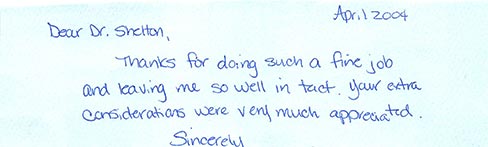 April 2004
Dear Dr. Shelton,
Thanks for doing such a fine job
and leaving me so well in tact. Your extra
considerations were very much appreciated.
Sincerely